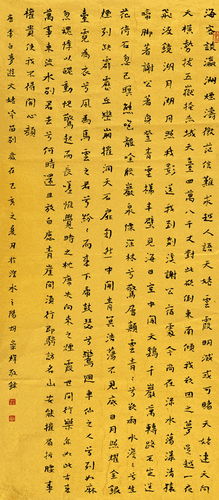 海客談瀛洲煙濤微茫信難求越人語天姥雲霞明滅或可睹天姥連
天橫勢拔五嶽掩赤城天台四萬八千丈對此欲倒東南傾我欲因之夢吳越一夜飛
度鏡湖月湖月照我影送我到剡溪謝公宿處今尚在淥水蕩漾清猿
啼腳著謝公屐身登青雲梯半壁見海日空中聞天雞千巖萬轉路不定迷
花倚石忽已暝熊咆龍吟殷巖泉慄深林兮驚層巔雲青青兮欲雨水澹澹兮生
煙列缺霹靂丘巒崩摧洞天石扉訇然中開青冥浩蕩不見底日月照耀金銀
臺霓為衣兮風為馬雲之君兮紛紛而來下虎鼓瑟兮鸞回車仙之人兮列如麻
忽魂悸以魄動怳驚起而長嗟惟覺時之枕席失向來之煙霞世間行樂亦如此古來
萬事東流水別君去兮何時還且放白鹿青崖間須行即騎訪名山安能摧眉折腰事
權貴使我不得開心顏
右李白夢遊天姥吟留別歲在己亥之夏月於水之陽胡輝敬錄